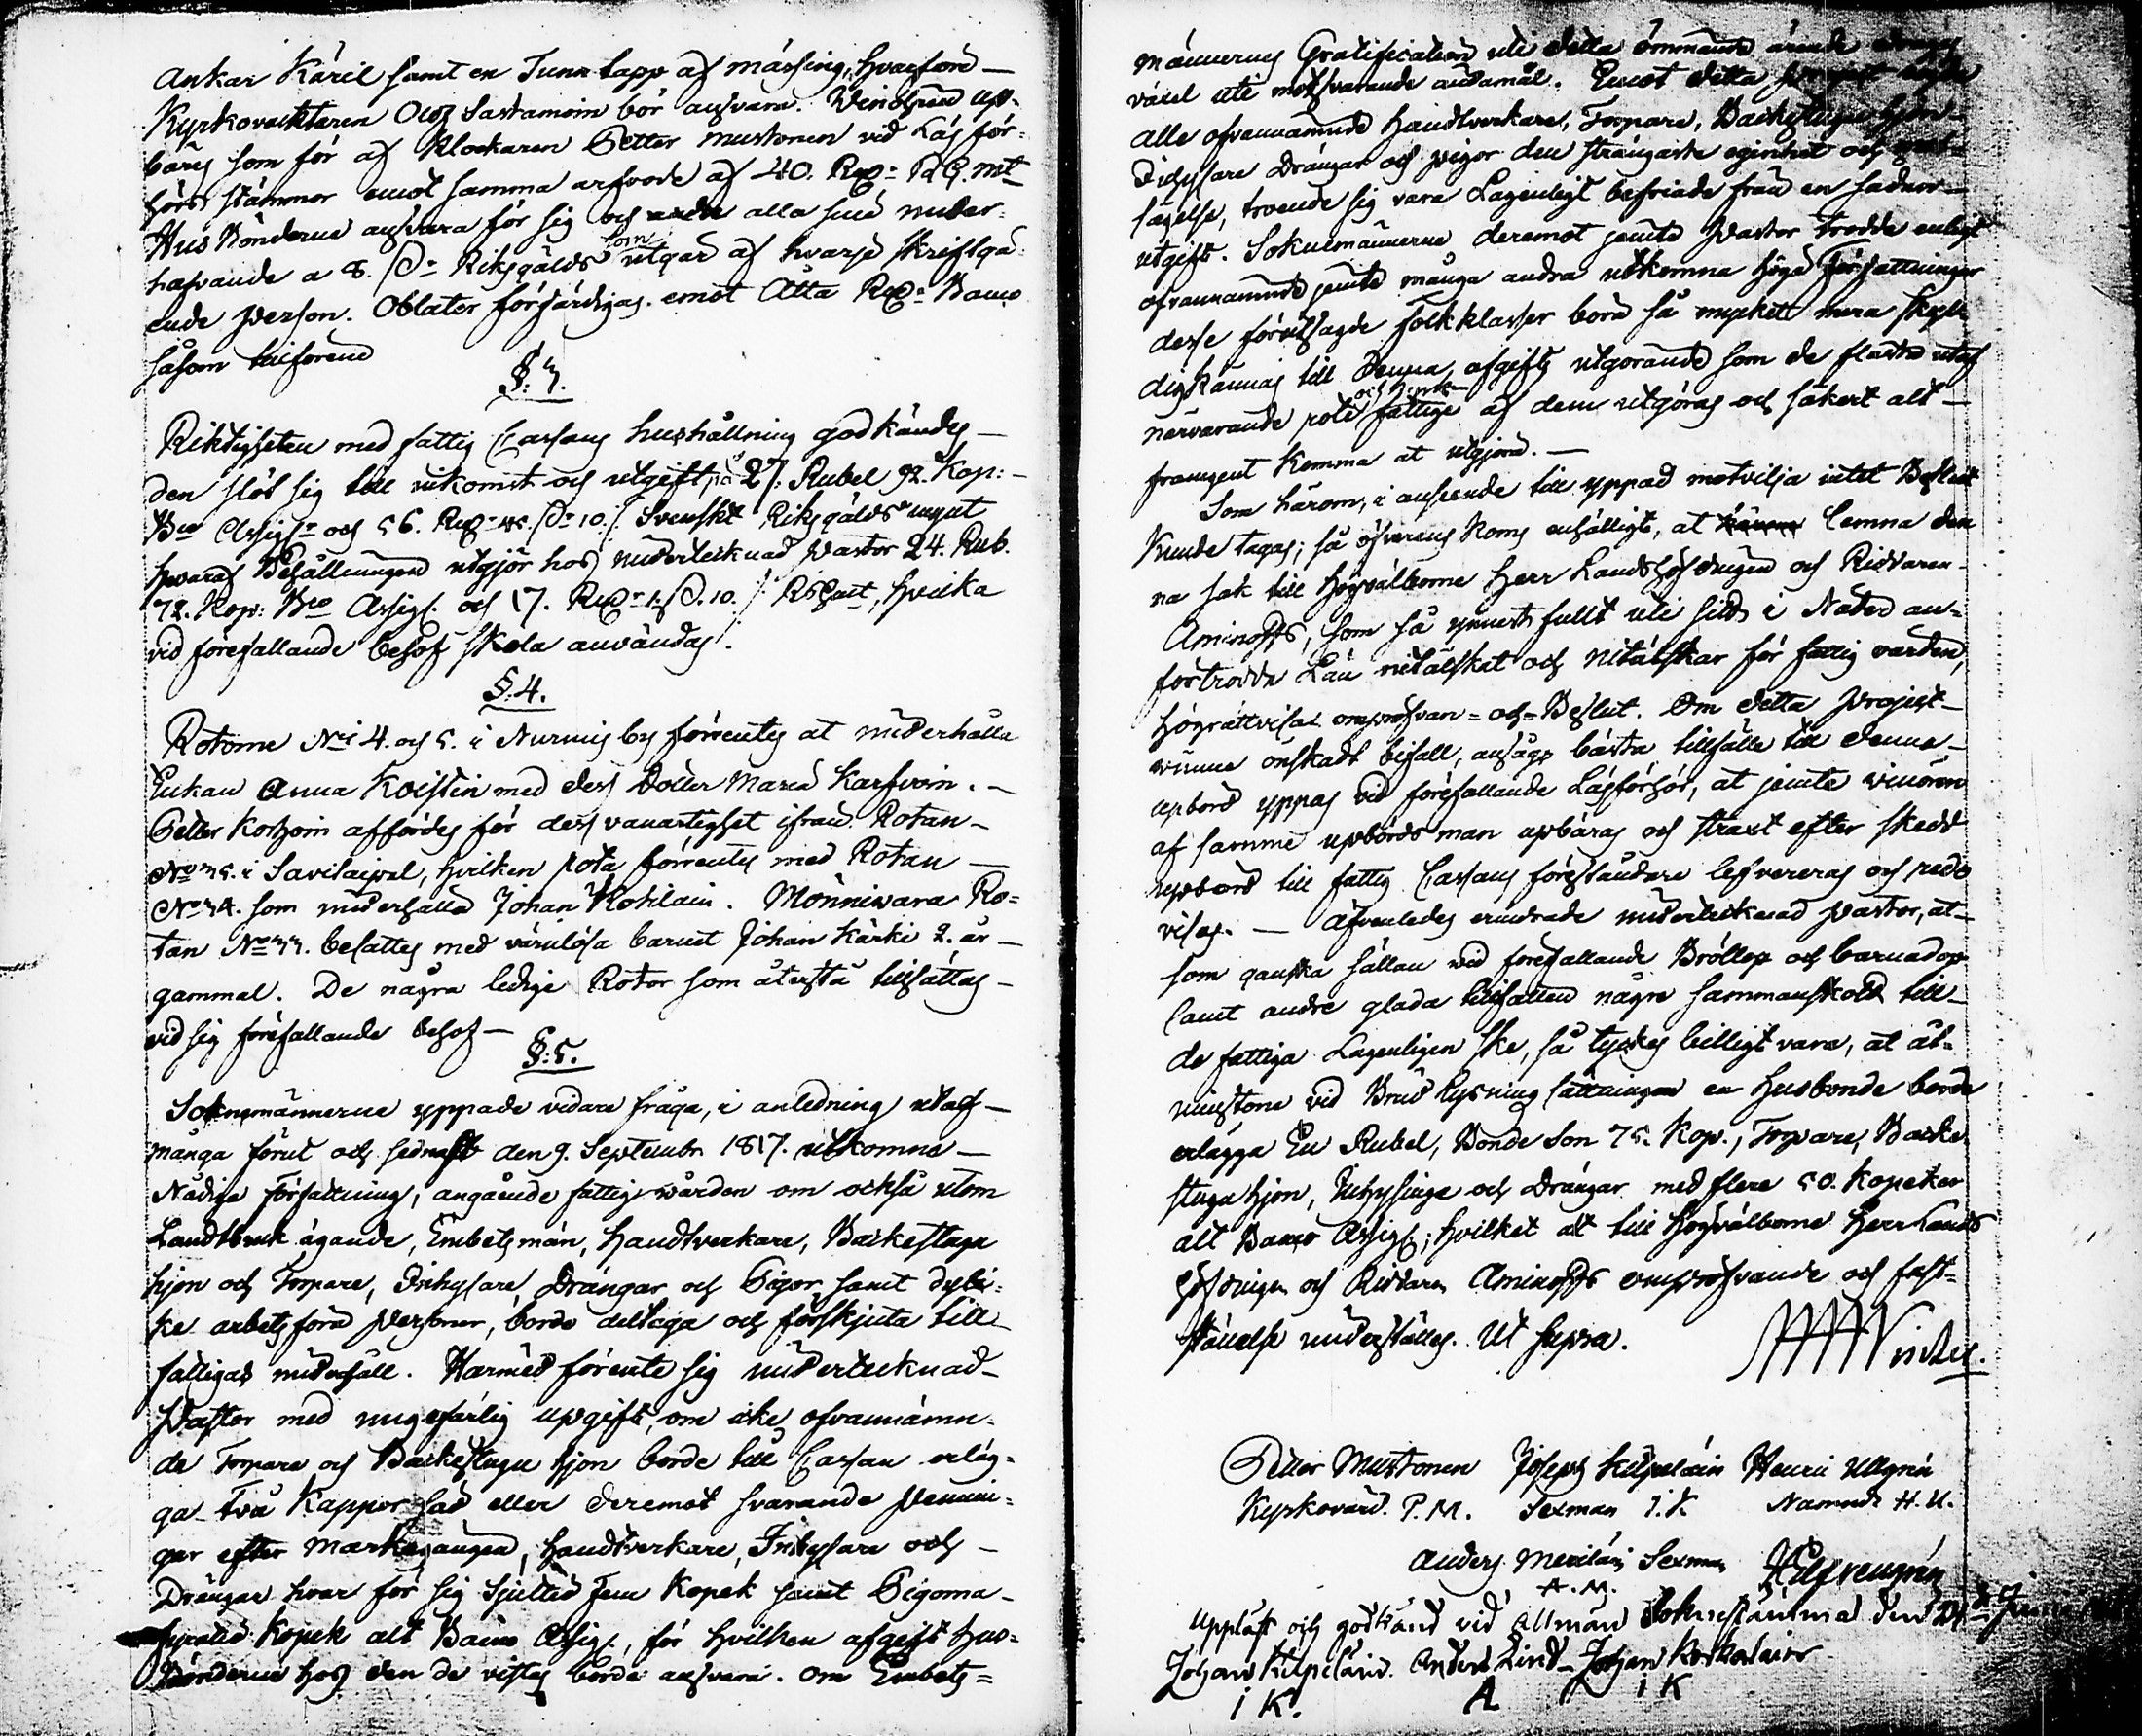 Ankar Käril samt en Tunn tapp af mässing, hvarföre —
Kyrkovacktaren Olof Sastamoin bör ansvara. Vinöhren upp-
bäres som för af Klockaren Petter Mustonen vid Läs för-
hörs stämmor emot samma arfvode af 40. RD: RG. mt
Hus Bönderne ansvara för sig och andre alla sine under-
hafvande a 8. Riksgälds som utgår af hvarje skriftgå-
ende person. Oblater förfärdigas emot Åtta RD: Banco
såsom tillförene
§: 3.
Riktigheten med fattig Cassans hushållning godkändes —
den slöt sig till inkomst och utgift på 27. Rubel 92. Kop: —
Bco Assigr och 56. 10. Svenskt Riksgälds mynt
hvaraf Behållningen utgjör hos undertecknad Pastor 24. Rub.
72. Kop: Bco Assigr. och 17. 10. hvilka
vid förefallande behof skola användas.
§. 4.
Rotorne No 4. och 5. i Nurmis by förrentes at underhålla
Enkan Anna Koistin med dess Dotter Maria Karfvoin. —
Petter Korhoin affördes för dess vanartighet ifrån Rotan —
No 35. i Savilaipal, hvilken rota förrentes med Rotan —
No 34. som underhålla Johan Kotilain. Mönniwara Ro-
tan No 33. besattes med värnlösa barnet Johan Kärki 2. år —
gammal. De några ledige Rotor som återstå tillsättas —
vid sig förefallande behof —
§: 5.
Soknemännerne yppade vidare fråga, i anledning utaf —
många förut och sednast den 9. Septembr 1817. utkomne —
Nådiga Författning, angående fattigvården om också utom
Landtbruk ägande, Embetsmän, Handtverkare, Backestugu
hjon och Torpare, Inhysare, Drängar och Pigor samt dyli-
ke arbetsföra Personer, borde deltaga och förskjuta till
fattigas underhåll. Härmed förente sig undertecknad —
Pastor med ungefärlig upgift, om icke ofvannämn-
de Torpare och Backestugu hjon borde till Cassan erläg-
ga Två Kappor säd eller deremot svarande Pennin-
gar efter Markegången, Handtverkare, Inhysare och —
Drängar hvar för sig Sjuttio Fem Kopek samt Pigorna —
Kopek alt Banco Assigr., för hvilken afgift Hus-
bönderne hos den de vistas borde ansvara. Om Embets=
männernes Gratification uti detta ömmande ärende
växel uti motsvarande ändamål. Emot detta
alle ofvannämnde Handtverkare, Torpare, Backestugu hjon
Inhysare Drängar och Pigor den strängaste eginhet och
sägelse, troende sig vara Lagenligt befriade från en sådan —
utgift. Soknemännerne deremot jemte Pastor trodde enligt
ofvannämnde jemte många andra utkomna höga Författningar
desse förutsagde folkklasser böra så mycket mera skyl-
dig kännas till denna afgifts utgörande som de flesta utaf
närvarande rote och fattige af dem utgöras och säkert alt —
framgent komma at utgöra. —
Som härom, i anseende till yppad motvilja intet Beslut
kunde tagas; så öfverens koms enhälligt, at lemna den-
na sak till Högvälborne Herr Landshöfdingen och Riddaren
Aminoffs, som så ynnest fullt uti sitt i Nåder an-
förtrodde Län nitälskat och nitälskar för fattig vården,
högrättvisa ompröfvan- och Beslut. Om detta Project —
vinner önskadt bifall, ansågs bästa tillfälle till denna —
upbörd yppas vid förefallande Läsförhör, at jemte vinören
af samme upbörds man upbäras och straxt efter skedd
upbörd till fattig Cassans föreståndare lefvereras och redo
visas. — Äfvenledes erindrade undertecknad Pastor, at —
som ganska sällan vid förefallande Bröllop och barnadop
samt andre glada tillfällen någre sammanskott till —
de fattiga Lagenligen ske, så tyckes billigt vara, at åt-
minstone vid Brud Lysning sättningen en Husbonde borde
erlägga En Rubel, Bonde Son 75. Kop., Torpare, Backe-
stugu hjon, Inhysinge och Drängar med flere 50. Kopeker
alt Banco Assigr; hvilket alt till Högvälborne Herr Lands
höfdingen och Riddaren Aminoffs ompröfvande och fast-
ställelse underställes. Ut supra.
Petter Mustonen Joseph Kilpeläin Henric Ullgrén
Kyrkovärd. P. M. Sexman I. K. Nämnde H. U.
Anders Meriläin Sexman
A. M.
Uppläst och godkänd vid Allmän Soknestämma den
Johan Kilpeläin. Anders Lind Johan
I K. A I K